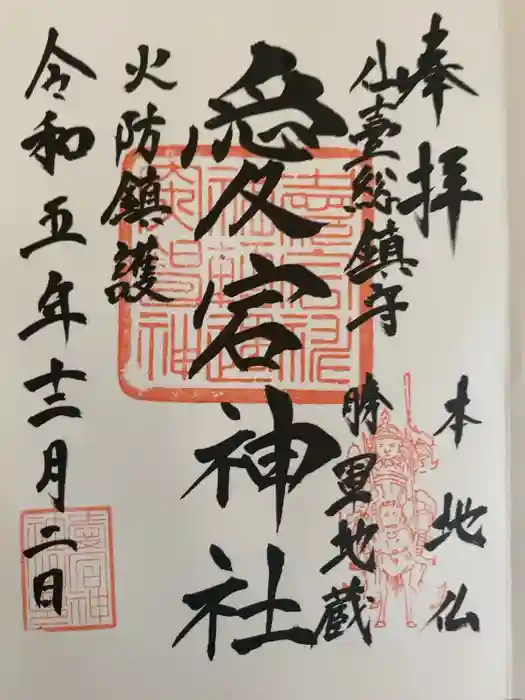 奉拝
本地仏
仙臺総鎮守
勝軍地蔵
愛宕神社
火防鎮護
令和五年十二月二日